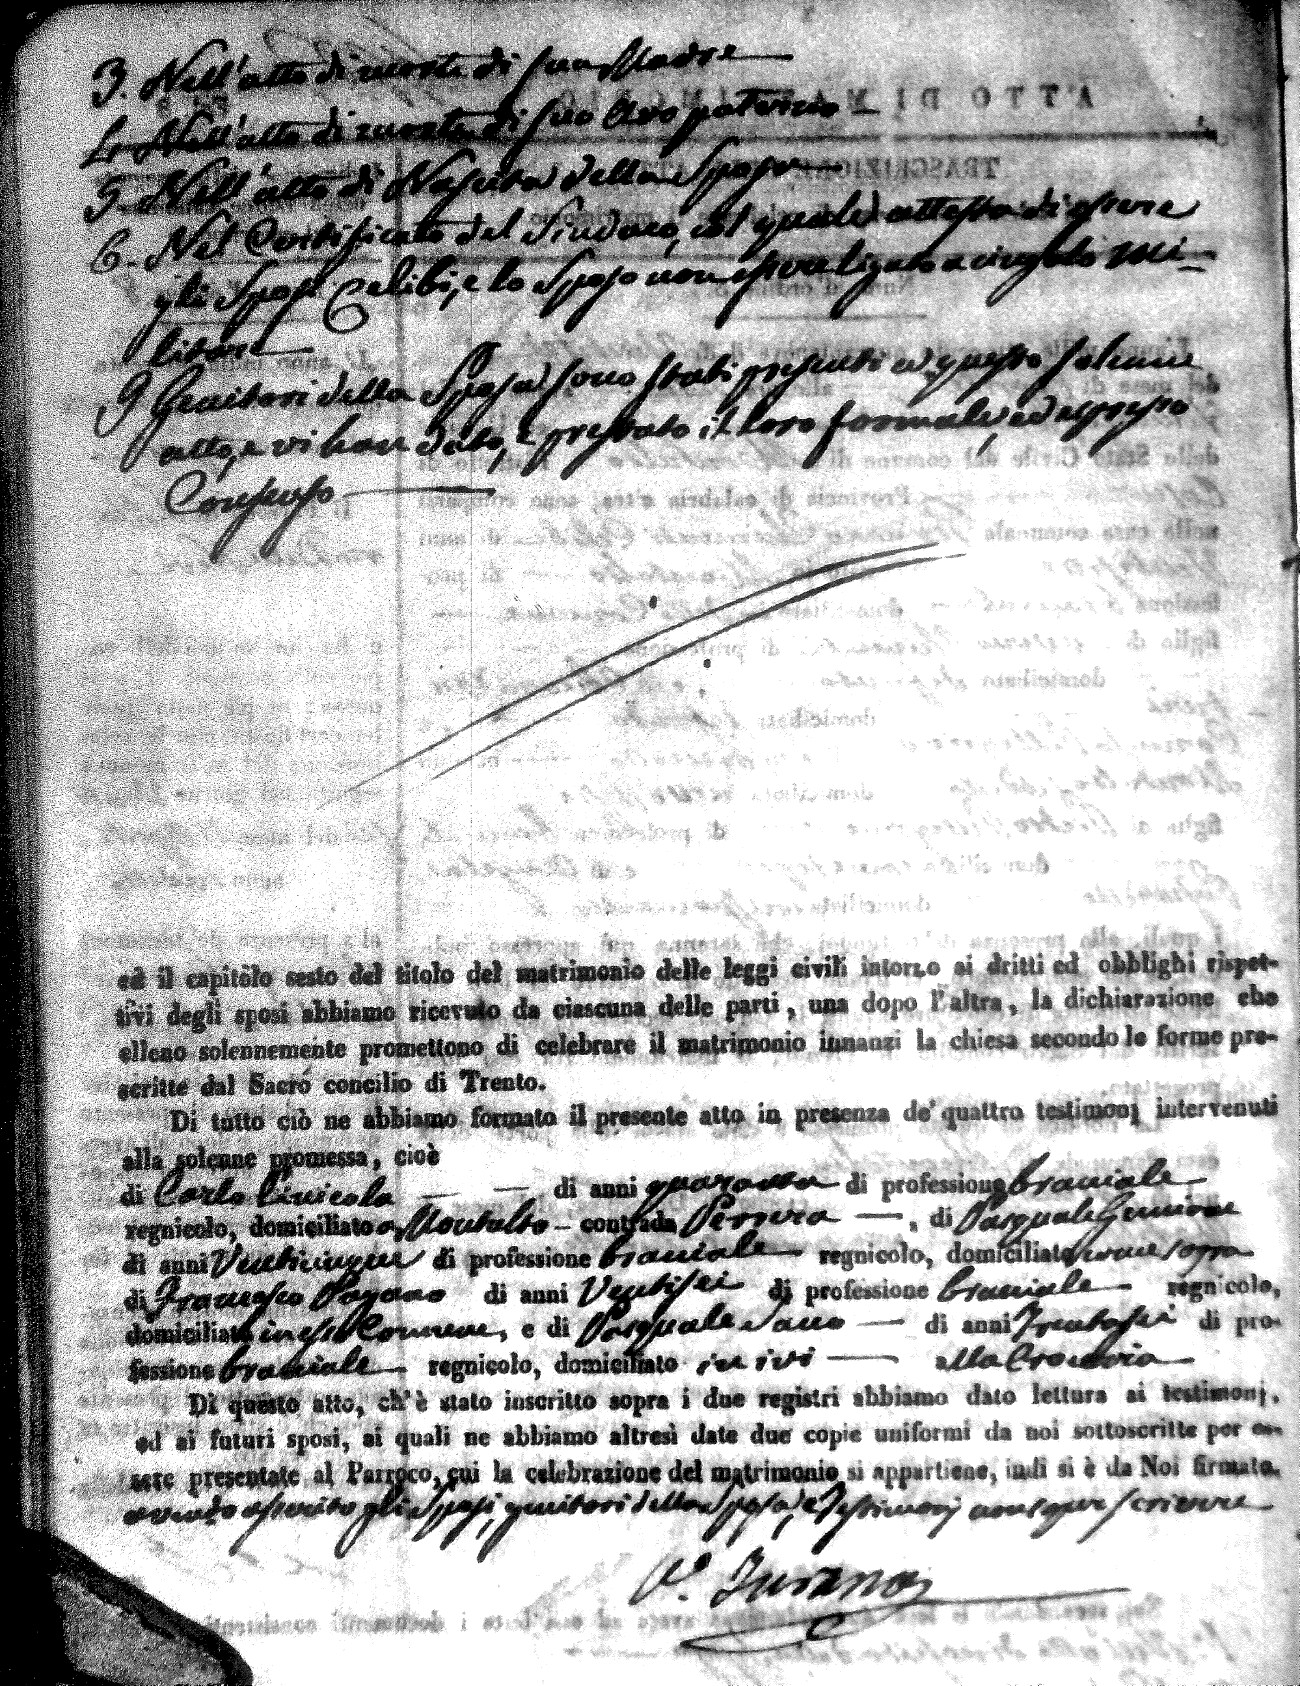 3. Nell'atto di morte di sua Madre
4. Nell'atto di morte di suo Avo paterno
5. Nell'atto di Nascita della Sposa
6. Nel Certificato del Sindaco, col quale attesta di essere
gli Sposi Celibi, e lo Sposo non a cingolo mi-
litare
I Genitori della Sposa sono stati presenti ad questo solenne
atto, e vi han dato, e prestato il loro formale, ed espresso
Consenso
ed il capitolo sesto del titolo del matrimonio delle leggi civili intorno ai dritti ed obblighi rispet-
tivi degli sposi abbiamo ricevuto da ciascuna delle parti, una dopo l'altra, la dichiarazione che
elleno solennemente promettono di celebrare il matrimonio innanzi la chiesa secondo le forme pre-
scritte dal Sacro concilio di Trento.
Di tutto ciò ne abbiamo formato il presente atto in presenza de' quattro testimonj intervenuti
alla solenne promessa, cioè
di Carlo di anni quaranta di professione braciale
regnicolo, domiciliato a Montalto contrada , di Pasquale
di anni Venticinque di professione braciale regnicolo, domiciliato come sopra
di Francesco Pagano di anni Ventisei di professione braciale regnicolo,
domiciliato in esso Comune, e di Pasquale di anni Trentasei di pro-
fessione braciale regnicolo, domiciliato ivi alla
Di questo atto, ch'è stato inscritto sopra i due registri abbiamo dato lettura ai testimonj,
ed ai futuri sposi, ai quali ne abbiamo altresì date due copie uniformi da noi sottoscritte per es-
sere presentate al Parroco, cui la celebrazione del matrimonio si appartiene, indi si è da Noi firmato,
avendo asserito gli Sposi, genitori della Sposa, e Testimonj non saper scrivere